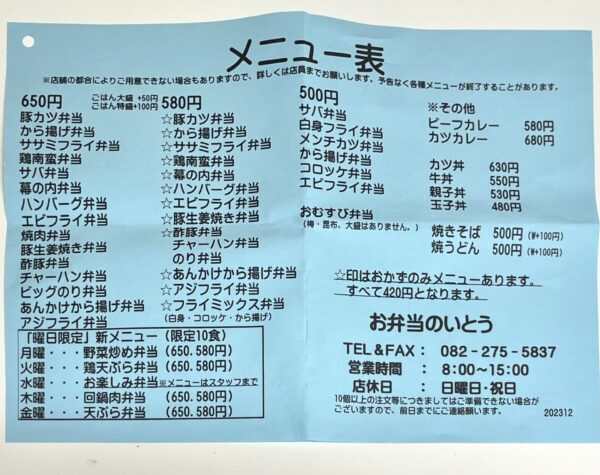 メニュー表
※店舗の都合によりご用意できない場合もありますので、詳しくは店員までお願いします。予告なく各種メニューが終了することがあります。
650円
ごはん大盛 +50円
ごはん特盛+100円
豚カツ弁当
から揚げ弁当
ササミフライ弁当
鶏南蛮弁当
サバ弁当
幕の内弁当
ハンバーグ弁当
エビフライ弁当
焼肉弁当
豚生姜焼き弁当
酢豚弁当
チャーハン弁当
ビッグのり弁当
あんかけから揚げ弁当
アジフライ弁当
580円
☆豚カツ弁当
☆から揚げ弁当
☆ササミフライ弁当
☆鶏南蛮弁当
☆幕の内弁当
☆ハンバーグ弁当
☆エビフライ弁当
☆豚生姜焼き弁当
☆酢豚弁当
チャーハン弁当
のり弁当
☆あんかけから揚げ弁当
☆アジフライ弁当
☆フライミックス弁当
(白身・コロッケ・から揚げ)
「曜日限定」新メニュー(限定10食)
月曜・・・野菜炒め弁当 (650.580円)
火曜・・・鶏天ぷら弁当 (650.580円)
水曜・・・お楽しみ弁当 ※メニューはスタッフまで
木曜・・・回鍋肉弁当 (650.580円)
金曜・・・天ぷら弁当 (650.580円)
500円
サバ弁当
白身フライ弁当
メンチカツ弁当
から揚げ弁当
コロッケ弁当
エビフライ弁当
おむすび弁当
(梅・昆布、大盛はありません。)
※その他
ビーフカレー 580円
カツカレー 680円
カツ丼 630円
牛丼 550円
親子丼 530円
玉子丼 480円
焼きそば 500円 (W+100円)
焼うどん 500円 (W+100円)
☆印はおかずのみメニューあります。
すべて420円となります。
お弁当のいとう
TEL&FAX: 082-275-5837
営業時間 : 8:00~15:00
店休日 : 日曜日・祝日
10個以上の注文等につきましてはご準備できない場合が
ございますので、前日までにご連絡願います。
202312